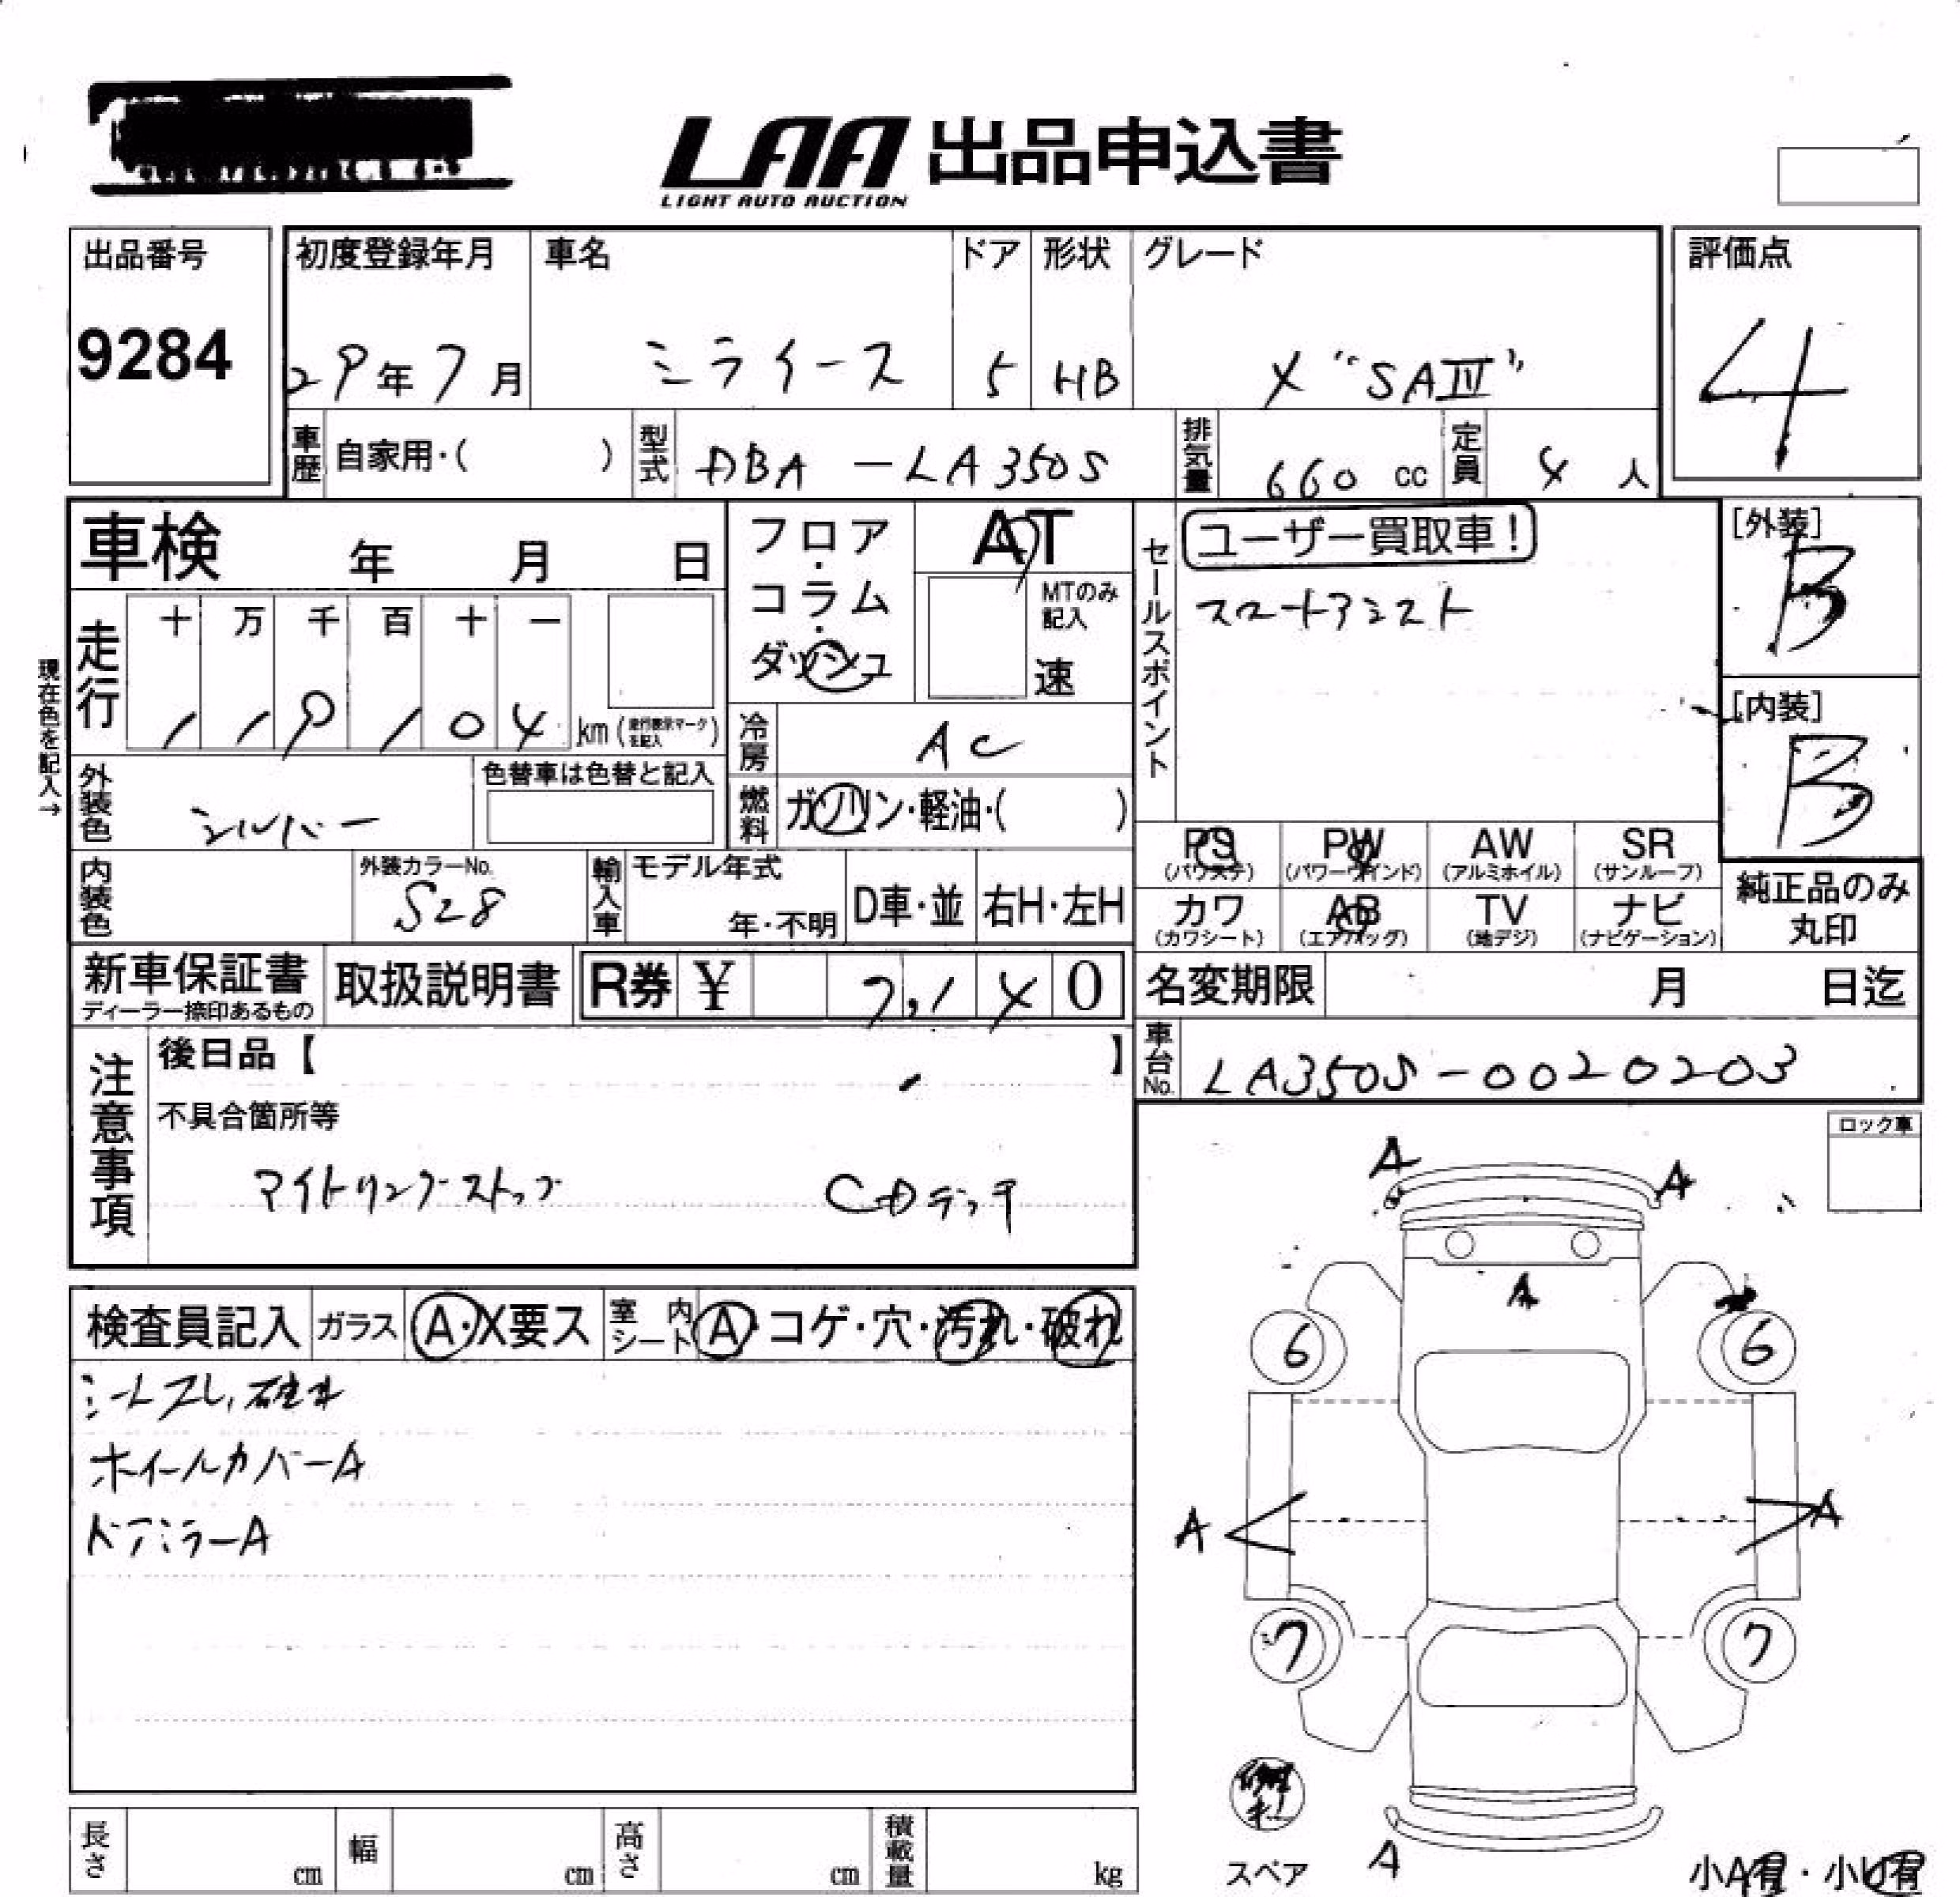 LAA 出品申込書
LIGHT AUTO AUCTION
出品番号
9284
初度登録年月
29年7月
車名
ミライース
ドア
5
形状
HB
グレード
X "SAⅢ"
評価点
4
車歴 自家用・( )
型式 DBA-LA350S
排気量 660 cc
定員 4 人
車検 年 月 日
フロア・コラム・ダッシュ
AT
MTのみ記入
速
セールスポイント
ユーザー買取車!
スマートアシスト
[外装]
B
[内装]
B
現在色を記入→
走行
十 万 千 百 十 一
1 1 9 1 0 4 km (走行表示マークを記入)
冷房 AC
外装色 シルバー
色替車は色替と記入
燃料 ガソリン・軽油・( )
PS (パワステ)
PW (パワーウインド)
AW (アルミホイル)
SR (サンルーフ)
カワ (カワシート)
AB (エアバッグ)
TV (地デジ)
ナビ (ナビゲーション)
純正品のみ丸印
内装色
外装カラーNo.
S28
輸入車
モデル年式
年・不明
D車・並
右H・左H
新車保証書
ディーラー捺印あるもの
取扱説明書
R券 ¥ 7,140
名変期限 月 日迄
車台No. LA350S-0020203
注意事項
後日品【 】
不具合箇所等
アイドリングストップ CDデッキ
ロック車
検査員記入
ガラス A・X要ス
室内シート A・コゲ・穴・汚れ・破れ
ホイールカバーA
ドアミラーA
A
A
A
6
6
A
A
7
7
A
スペア
小A有・小U有
長さ cm
幅 cm
高さ cm
積載量 kg